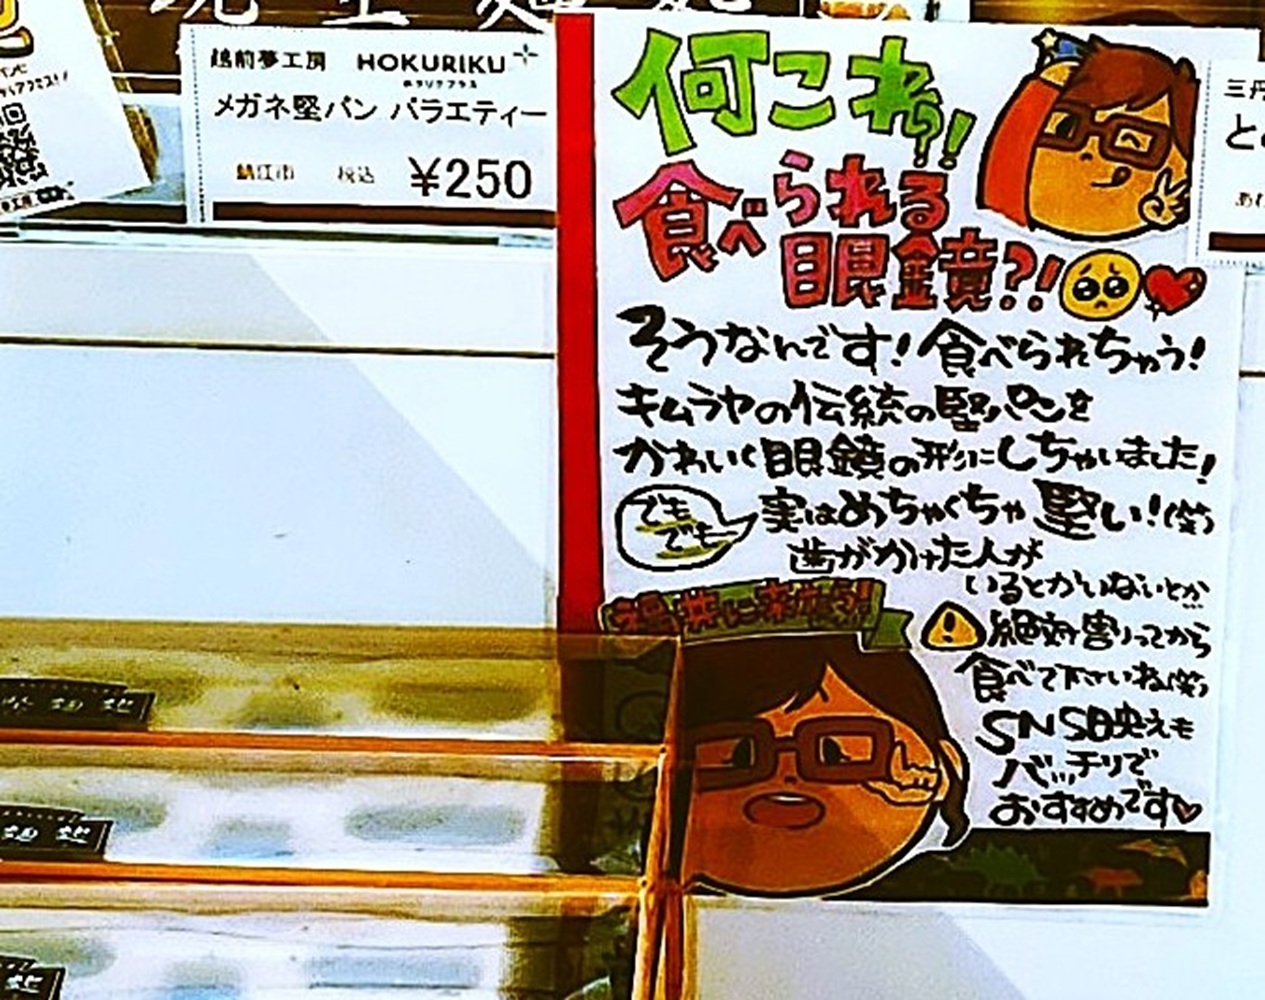 越前夢工房 HOKURIKU+
ホクリクプラス
メガネ堅パン バラエティー
鯖江市 税込 ¥250
何これぅ!!
食べられる
眼鏡?!
そうなんです!食べられちゃう!
キムラヤの伝統の堅パンを
かわいく眼鏡の形にしちゃいました!
でも
でも
実はめちゃくちゃ堅い!(笑)
歯がかけた人が
いるとかいないとか…
絶対割ってから
食べて下さいね(笑)
SNS映えも
バッチリで
おすすめです♥
福井に来たなら!
三丹
と
あわ